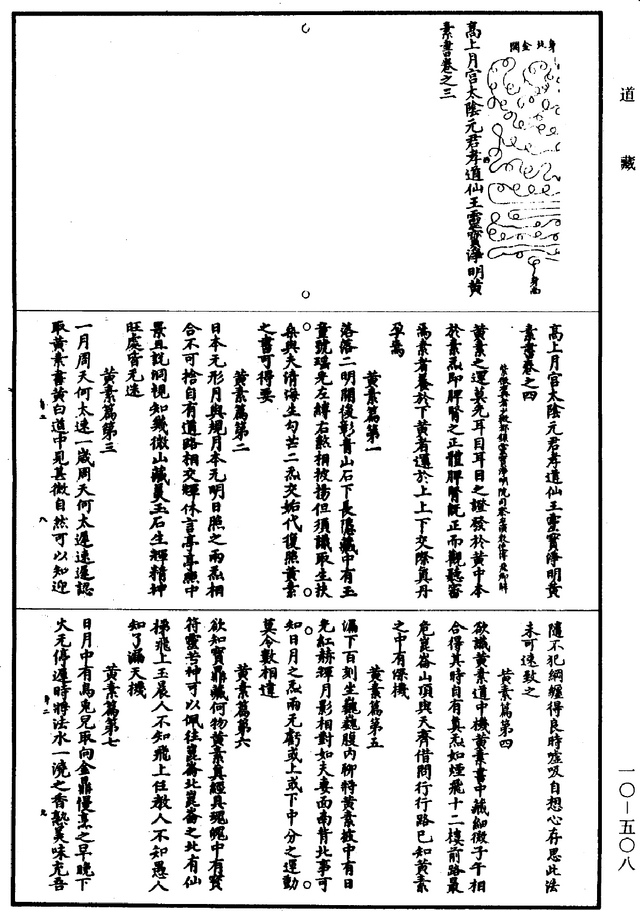 道藏
身北金闕
高上月宮太陰元君孝道仙王靈寶淨明黃
素書卷之三
高上月宮太陰元君孝道仙王靈寶淨明黃
素書卷之四
黃素之運莫先耳目耳目之證發於黃中本
於素炁即脾腎之正體脾腎既正而觀聽審
焉素者養於下黃者運於上上下交際真丹
孕焉
黃素篇第一
落落二明關復彰青山石下長隱藏中有玉
童號瑤光左縛右煞相被揚但須識取生扶
桑與夫清海生勾芒二炁交姤代復照黃素
之書可得要
黃素篇第二
日本元形月與規月本元明日照之兩炁相
合不可捨自有道路相交輝休言亭亭照中
景且説洞視知幾微山藏異玉石生輝精神
旺處宵元迷
黃素篇第三
一月周天何太速一歲周天何太遲速遲認
取黃素書黃白道中見其微自然可以知迎
隨不犯綱纏得良時噓吸自想心存思此法
未可速致之
黃素篇第四
欲識黃素道中機黃素書中藏細微子午相
合得其時自有真炁如煙飛十二樓前路最
危崑崙山頂與天齊借問行行路已知黃素
之中有深機
黃素篇第五
漏下百刻坐巍巍腹内聊將黃素披中有日
光紅赫輝月影相對如夫妻面南背北事可
知日月之炁兩元虧或上或下中分之運動
莫令數相違
黃素篇第六
欲知寶鼎藏何物黃素真經具現魄中有寶
符靈若神可以佩往崑崙北崑崙之北有仙
梯飛上玉晨人不知飛上任教人不知愚人
知了漏天機
黃素篇第七
日月中有烏兔兒取向金鼎慢烹之早晚下
火元停遲時將法水一澆之香熟美味充吾
一〇—五〇八